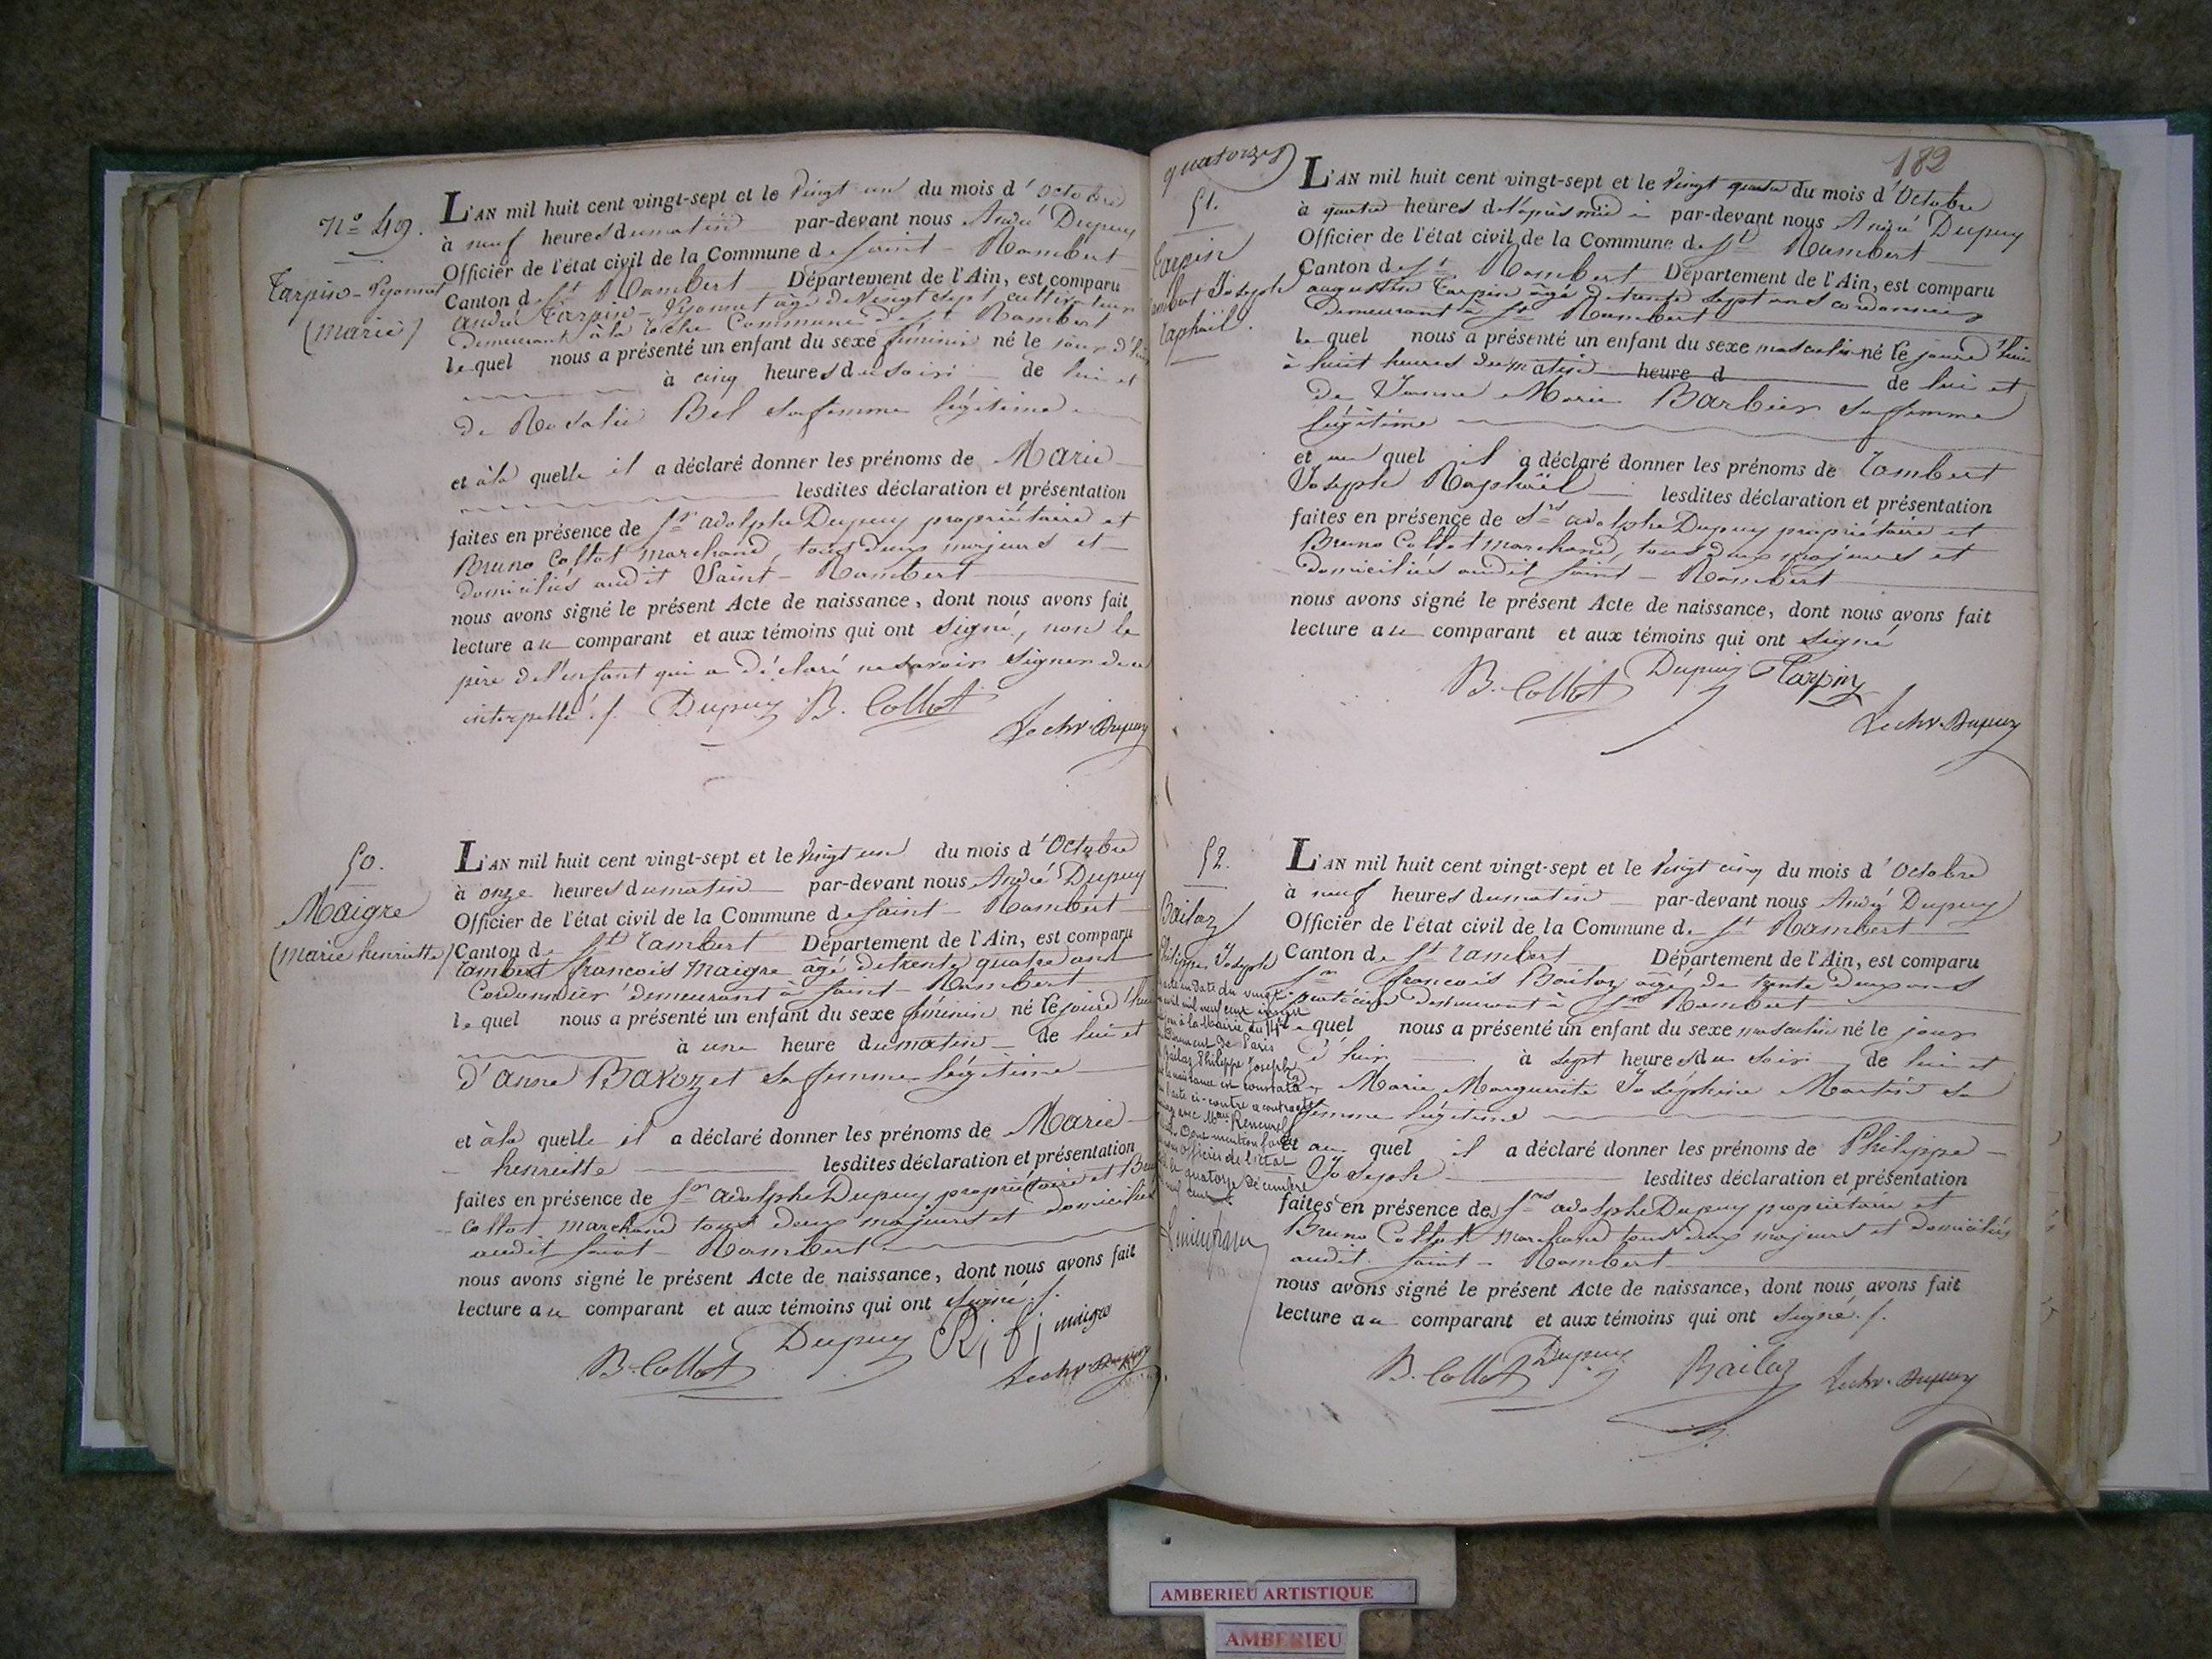 N.o 49.
Tarpin-Pyonnet
(Marie)
L'AN mil huit cent vingt-sept et le vingt un du mois d'Octobre
à neuf heures du matin par-devant nous André Dupuy
Officier de l'état civil de la Commune de Saint-Rambert
Canton de St Rambert Département de l'Ain, est comparu
andré Tarpin-Pyonnet âgé de vingt sept cultivateur
demeurant à la Commune de St Rambert
lequel nous a présenté un enfant du sexe féminin né le jour d'hier
à cinq heures du soir de lui et
de Rosalie Bel sa femme légitime
et à la quelle il a déclaré donner les prénoms de Marie
lesdites déclaration et présentation
faites en présence de Srs adolphe Dupuy propriétaire et
Bruno Collot marchand, tous deux majeurs et
domiciliés audit Saint-Rambert
nous avons signé le présent Acte de naissance, dont nous avons fait
lecture au comparant et aux témoins qui ont signé, non le
père de l'enfant qui a déclaré ne savoir signer de ce
interpellé ./. Dupuy B. Collot
Dupuy
50.
Maigre
(marie henriette)
L'AN mil huit cent vingt-sept et le vingt un du mois d'Octobre
à onze heures du matin par-devant nous André Dupuy
Officier de l'état civil de la Commune de Saint-Rambert
Canton de St rambert Département de l'Ain, est comparu
rambert francois Maigre âgé de trente quatre ans
Cordonnier demeurant à Saint-Rambert
lequel nous a présenté un enfant du sexe féminin né le jourd'hui
à une heure du matin de lui et
d'anne Bavozet sa femme légitime
et à la quelle il a déclaré donner les prénoms de Marie
henriette lesdites déclaration et présentation
faites en présence de Srs adolphe Dupuy propriétaire et Bruno
Collot marchand tous deux majeurs et domiciliés
audit Saint-Rambert
nous avons signé le présent Acte de naissance, dont nous avons fait
lecture au comparant et aux témoins qui ont signé ./.
B. Collot Dupuy maigre
Dupuy
182
quatorze
51.
Tarpin
Rambert Joseph
raphaël.
L'AN mil huit cent vingt-sept et le vingt quatre du mois d'Octobre
à quatre heures de l'après midi par-devant nous André Dupuy
Officier de l'état civil de la Commune de St Rambert
Canton de St Rambert Département de l'Ain, est comparu
augustin Tarpin âgé de trente sept ans cordonnier
demeurant à St Rambert
lequel nous a présenté un enfant du sexe masculin né le jourd'hui
à huit heures du matin heure d de lui et
de Jeanne Marie Barbier sa femme
légitime
et au quel il a déclaré donner les prénoms de rambert
Joseph Raphaël lesdites déclaration et présentation
faites en présence de Srs adolphe Dupuy propriétaire et
Bruno Collot marchand, tous deux majeurs et
domiciliés audit Saint-Rambert
nous avons signé le présent Acte de naissance, dont nous avons fait
lecture au comparant et aux témoins qui ont signé
B. Collot Dupuy Tarpin
Dupuy
52.
Bailaz
Philippe Joseph
L'AN mil huit cent vingt-sept et le vingt cinq du mois d'Octobre
à neuf heures du matin par-devant nous André Dupuy
Officier de l'état civil de la Commune de St Rambert
Canton de St rambert Département de l'Ain, est comparu
Sr francois Bailaz âgé de trente deux ans
demeurant à St Rambert
lequel nous a présenté un enfant du sexe masculin né le jour
d'hier à sept heures du soir de lui et
Marie Marguerite Josephine Martin sa
femme légitime
et au quel il a déclaré donner les prénoms de Philippe
Joseph lesdites déclaration et présentation
faites en présence de Srs adolphe Dupuy propriétaire et
Bruno Collot marchand tous deux majeurs et domiciliés
audit Saint-Rambert
nous avons signé le présent Acte de naissance, dont nous avons fait
lecture au comparant et aux témoins qui ont signé ./.
B. Collot Dupuy Bailaz Dupuy
acte en date du vingt
à la Mairie du
de Paris
Bailaz Philippe Joseph
la naissance est constatée
l'acte ci-contre a contracté
avec Renewel
Dont mention faite
officier de l'état
quatorze décembre
AMBERIEU ARTISTIQUE
AMBERIEU